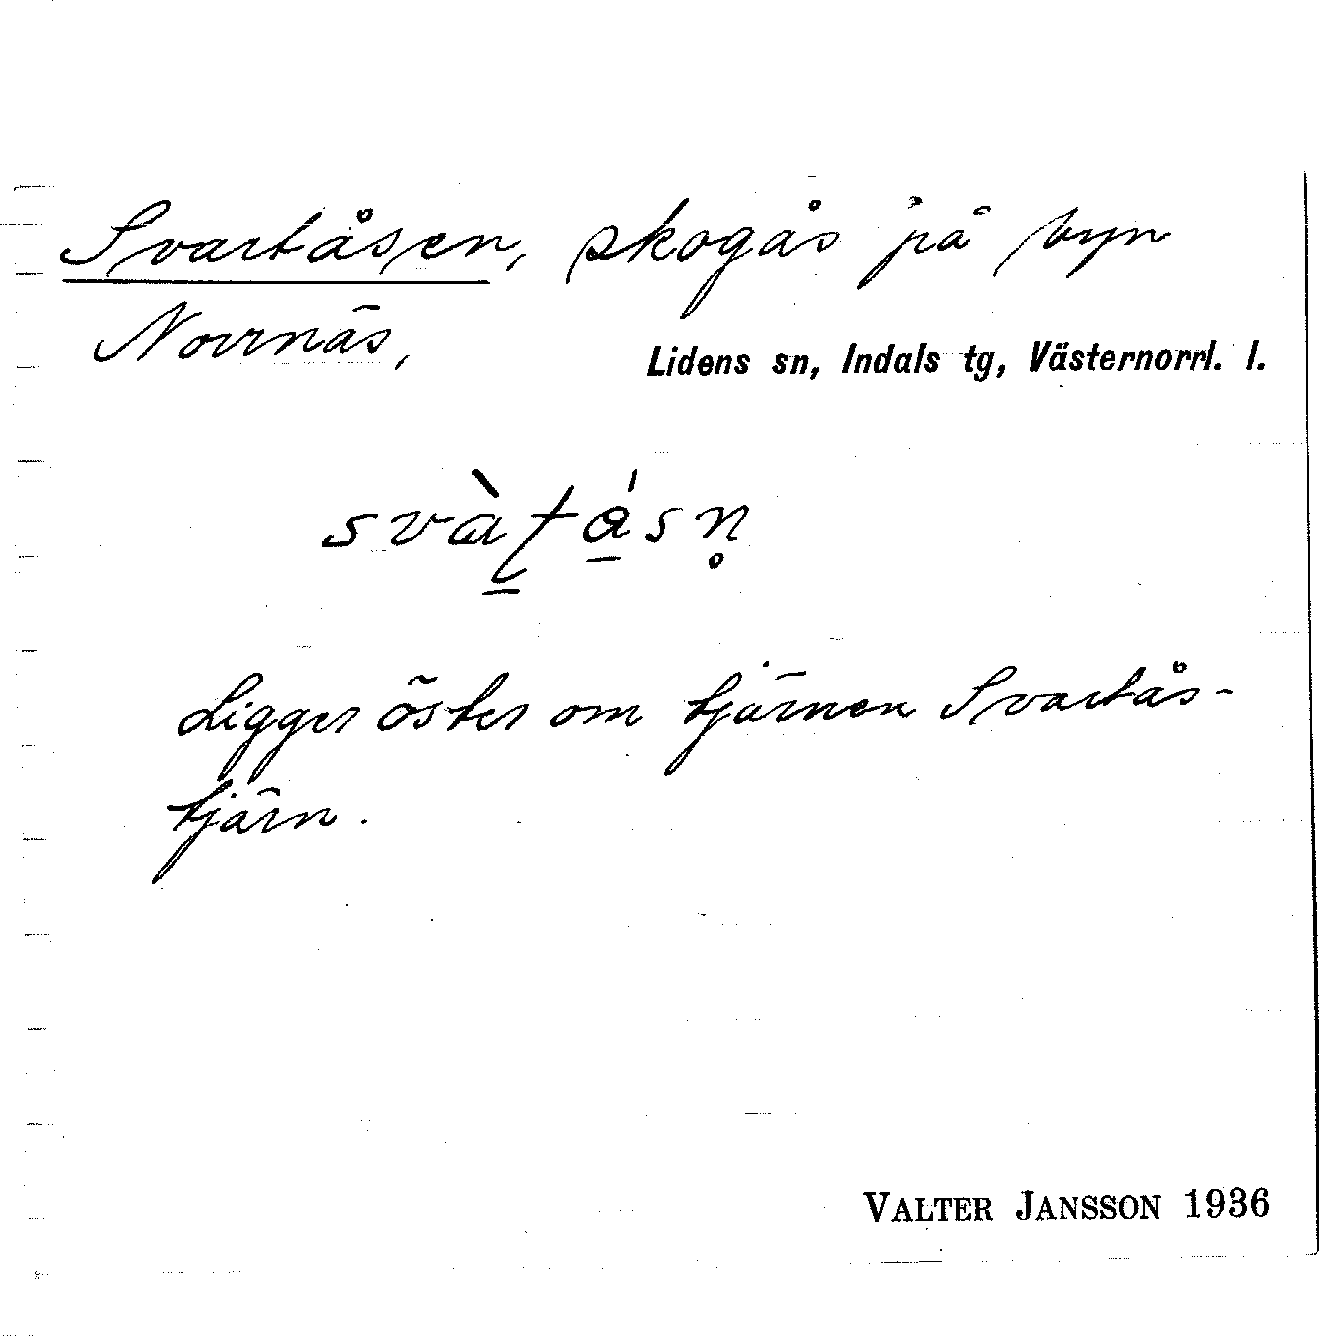 Svartåsen, skogås på byn
Norrnäs,
Lidens sn, Indals tg, Västernorrl. l.
svàt̲á̲sn̥
Ligger öster om tjärnen Svartås-
tjärn.
VALTER JANSSON 1936